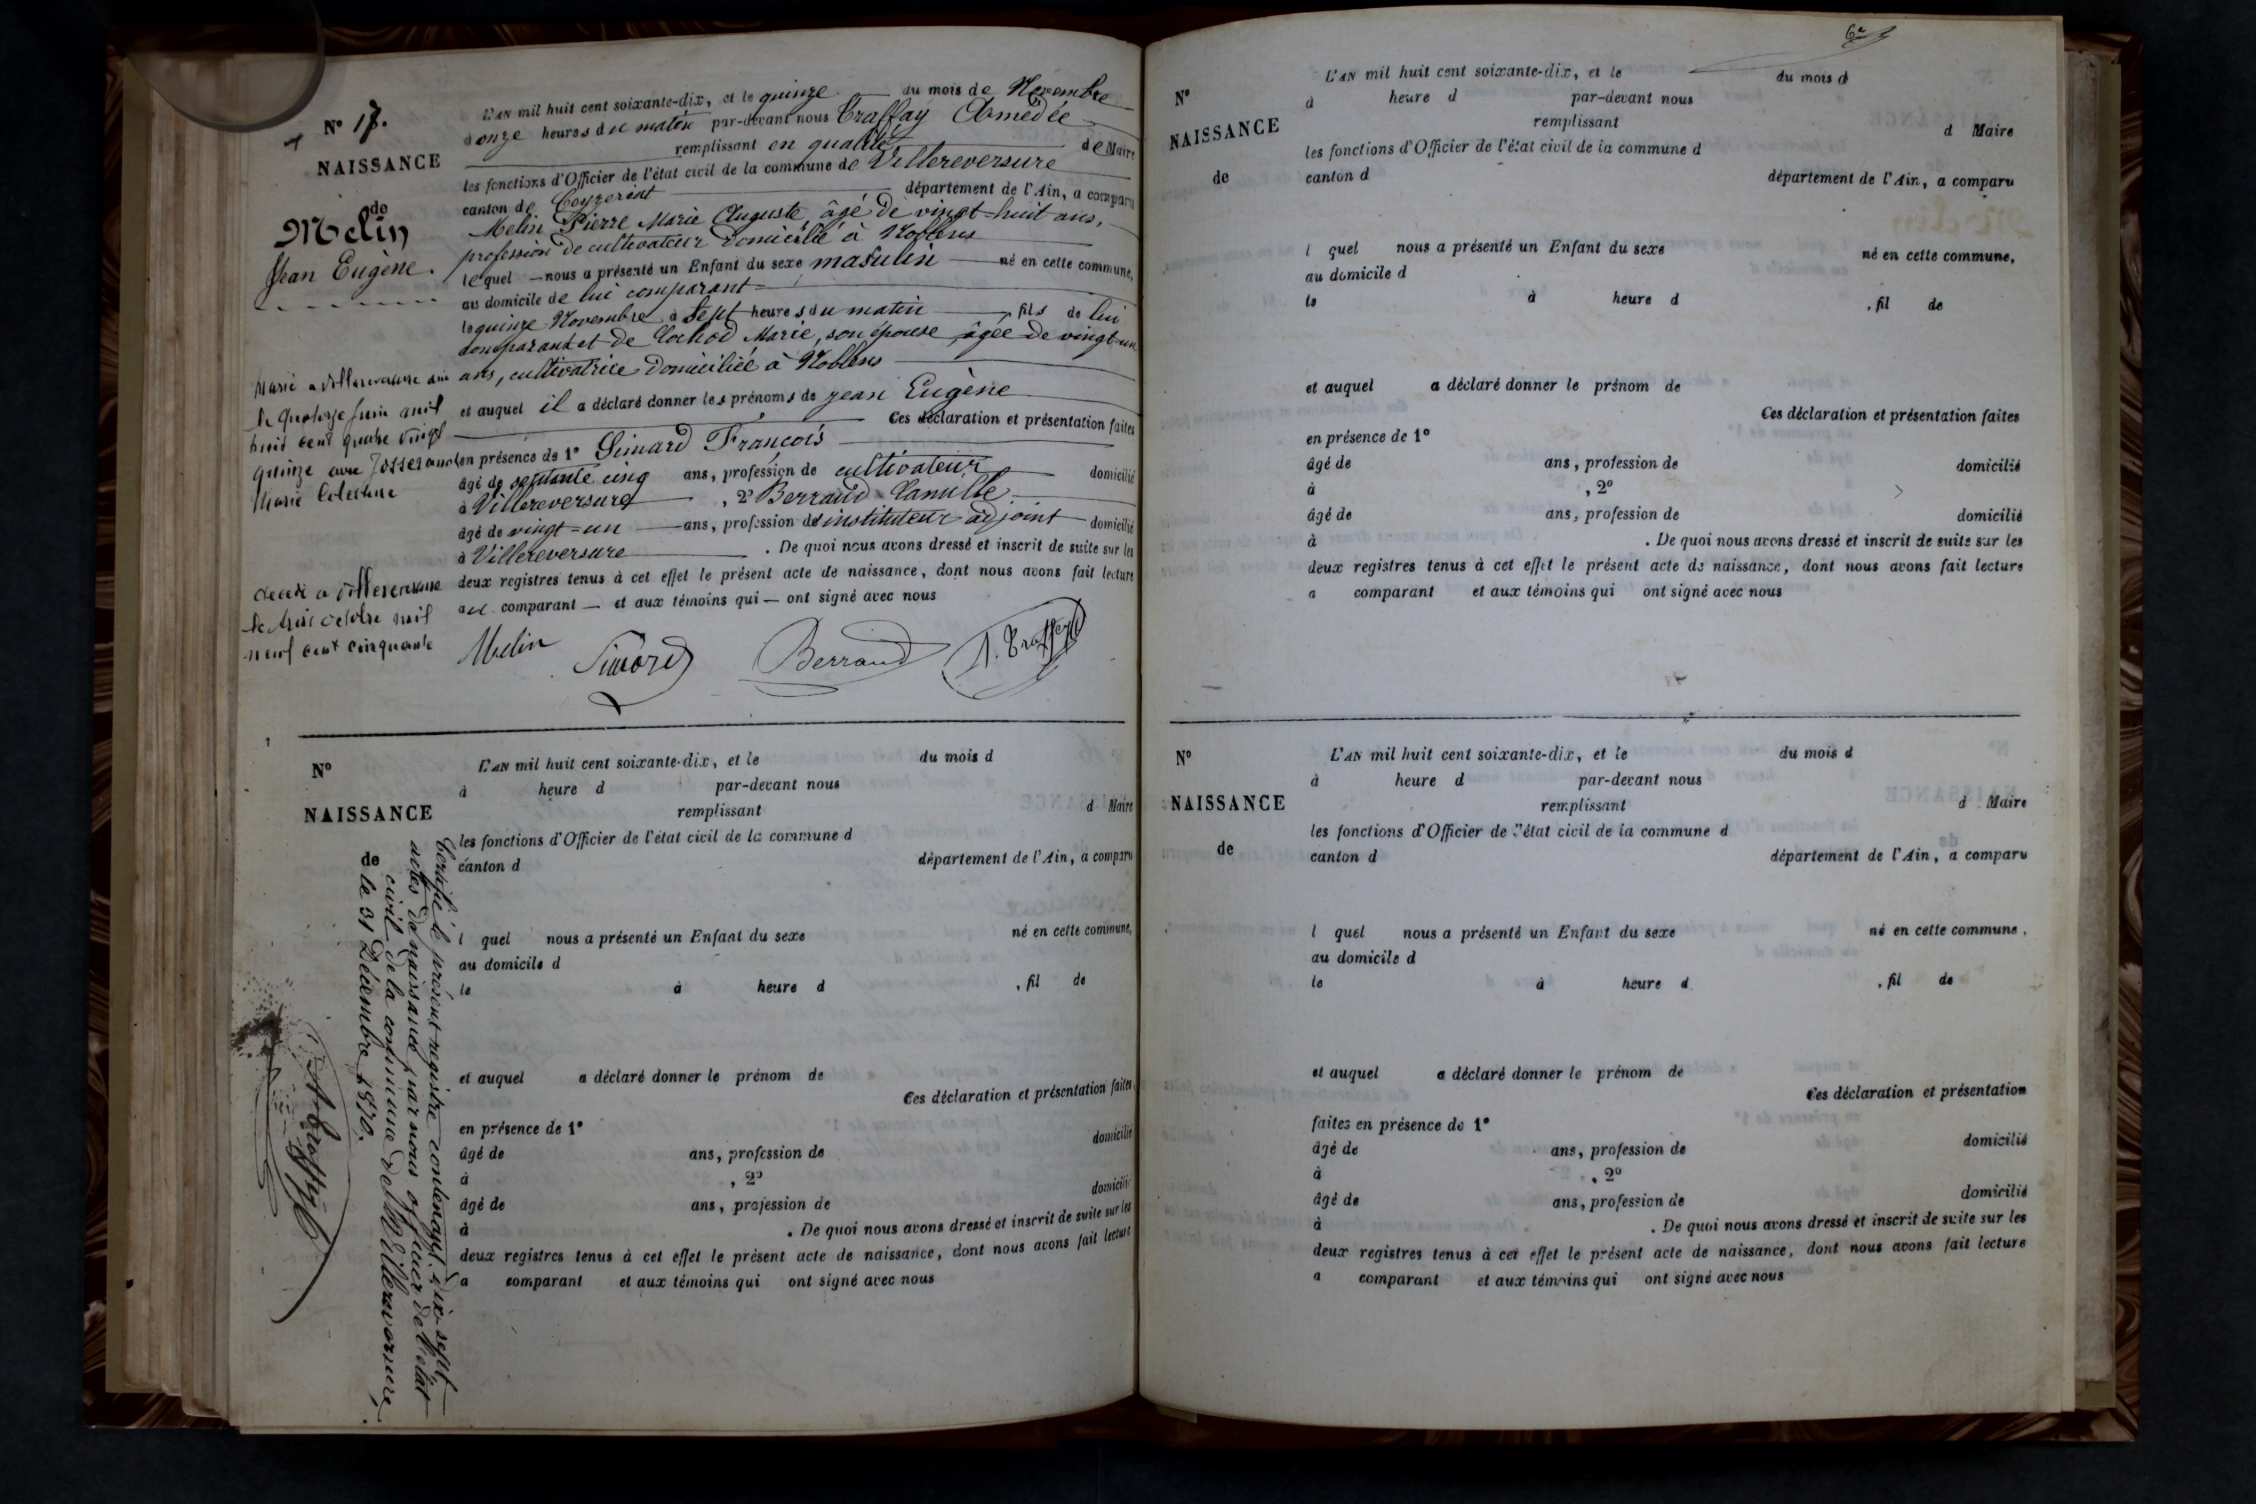 N° 17.
NAISSANCE
de
Melin
Jean Eugène.
L'AN mil huit cent soixante-dix, et le quinze du mois de Novembre
à onze heures du matin par-devant nous Traffay Amédée
remplissant en qualité de Maire
les fonctions d'Officier de l'état civil de la commune de Villereversure
canton de Ceyzeriat département de l'Ain, a comparu
Melin Pierre Marie Auguste, âgé de vingt-huit ans,
profession de cultivateur domicilié à Noblens
lequel nous a présenté un Enfant du sexe masulin né en cette commune,
au domicile de lui comparant
le quinze Novembre à sept heures du matin, fils de lui
comparant et de Cochod Marie, son épouse âgée de vingt-un
ans, cultivatrice domiciliée à Noblens
et auquel il a déclaré donner les prénoms de jean Eugène
Ces déclaration et présentation faites
en présence de 1° Simard François
âgé de septante cinq ans, profession de cultivateur domicilié
à Villereversure, 2° Berraud Camille
âgé de vingt-un ans, profession de instituteur adjoint domicilié
à Villereversure. De quoi nous avons dressé et inscrit de suite sur les
deux registres tenus à cet effet le présent acte de naissance, dont nous avons fait lecture
au comparant et aux témoins qui ont signé avec nous
Melin Simard Berraud A. Traffay
Marié a Villereversure
le quatorze juin mil
huit cent quatre vingt
quinze avec Josserand
Marie
décédé a Villereversure
le trois octobre mil
neuf cent cinquante
N°
NAISSANCE
de
L'AN mil huit cent soixante-dix, et le du mois d
à heure d par-devant nous
remplissant d Maire
les fonctions d'Officier de l'état civil de la commune d
canton d département de l'Ain, a comparu
l quel nous a présenté un Enfant du sexe né en cette commune,
au domicile d
le à heure d , fil de
et auquel a déclaré donner le prénom de
Ces déclaration et présentation faites
en présence de 1°
âgé de ans, profession de domicilié
à , 2°
âgé de ans, profession de domicilié
à . De quoi nous avons dressé et inscrit de suite sur les
deux registres tenus à cet effet le présent acte de naissance, dont nous avons fait lecture
a comparant et aux témoins qui ont signé avec nous
Certifié le présent registre contenant dix-sept
actes de naissance par nous officier de l'état
civil de la commune de Villereversure,
le 31 Décembre 1870.
A. Traffay
6e
N°
NAISSANCE
de
L'AN mil huit cent soixante-dix, et le du mois d
à heure d par-devant nous
remplissant d Maire
les fonctions d'Officier de l'état civil de la commune d
canton d département de l'Ain, a comparu
l quel nous a présenté un Enfant du sexe né en cette commune,
au domicile d
le à heure d , fil de
et auquel a déclaré donner le prénom de
Ces déclaration et présentation faites
en présence de 1°
âgé de ans, profession de domicilié
à , 2°
âgé de ans, profession de domicilié
à . De quoi nous avons dressé et inscrit de suite sur les
deux registres tenus à cet effet le présent acte de naissance, dont nous avons fait lecture
a comparant et aux témoins qui ont signé avec nous
N°
NAISSANCE
de
L'AN mil huit cent soixante-dix, et le du mois d
à heure d par-devant nous
remplissant d Maire
les fonctions d'Officier de l'état civil de la commune d
canton d département de l'Ain, a comparu
l quel nous a présenté un Enfant du sexe né en cette commune,
au domicile d
le à heure d , fil de
et auquel a déclaré donner le prénom de
Ces déclaration et présentation
faites en présence de 1°
âgé de ans, profession de domicilié
à , 2°
âgé de ans, profession de domicilié
à . De quoi nous avons dressé et inscrit de suite sur les
deux registres tenus à cet effet le présent acte de naissance, dont nous avons fait lecture
a comparant et aux témoins qui ont signé avec nous